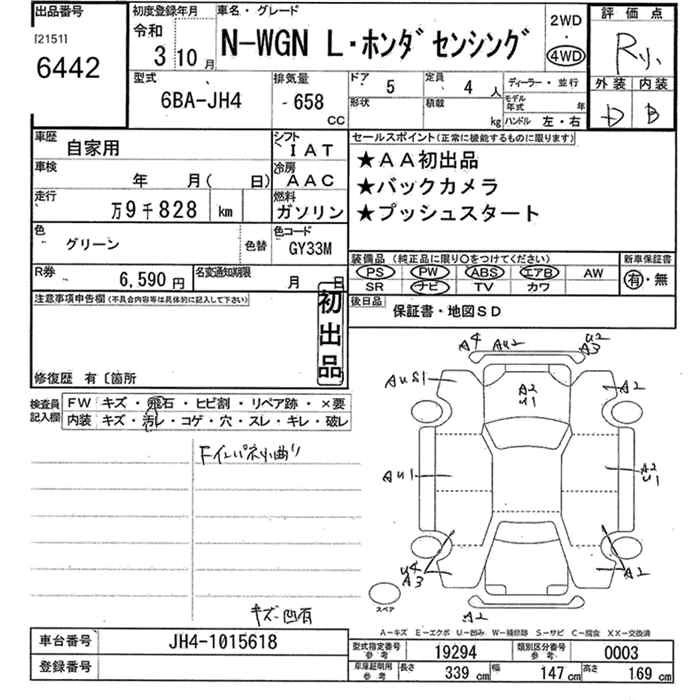 出品番号
[2151]
6442
初度登録年月
令和
3 10 月
車名・グレード
N-WGN L・ホンダセンシング
2WD
・
4WD
評価点
R小
外装 内装
D B
型式
6BA-JH4
排気量
-658
CC
ドア
5
定員
4 人
形状
積載
kg
ディーラー・並行
モデル年式 年
ハンドル 左・右
車歴
自家用
シフト
IAT
車検
年 月( 日)
冷房
AAC
走行
万9千828 km
燃料
ガソリン
色
グリーン
色替
色コード
GY33M
R券
6,590 円
名変通知期限
月 日
セールスポイント(正常に機能するものに限ります)
★AA初出品
★バックカメラ
★プッシュスタート
装備品 (純正品に限り○をつけてください)
PS PW ABS エアB AW
SR ナビ TV カワ
新車保証書
有・無
後日品
保証書・地図SD
注意事項申告欄(不具合内容等は具体的に記入して下さい)
初出品
修復歴 有〔箇所
検査員
記入欄
FW キズ・飛石・ヒビ割・リペア跡・×要
内装 キズ・汚レ・コゲ・穴・スレ・キレ・破レ
Fインパネ小曲り
キズ・凹有
A4 AU2 U2 A3
AUS1
A2
U1
A2
AU1
A2
U1
U4
A3
A2
A2
スペア
A-キズ E-エクボ U-凹み W-補修跡 S-サビ C-腐食 XX-交換済
車台番号
JH4-1015618
登録番号
型式指定番号
参考
19294
類別区分番号
参考
0003
車庫証明用
参考
長さ 339 cm 幅 147 cm 高さ 169 cm